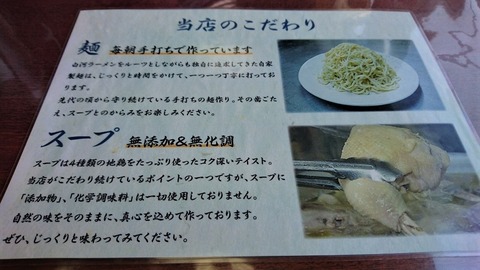 当店のこだわり
麺 毎朝手打ちで作っています
白河ラーメンをルーツとしながらも独自に追求してきた自家
製麺は、じっくりと時間をかけて、一つ一つ丁寧に打ってお
ります。
先代の頃から守り続けている手打ちの麺作り。その歯ごた
え、スープとのからみをお楽しみください。
スープ 無添加&無化調
スープは4種類の地鶏をたっぷり使ったコク深いテイスト。
当店がこだわり続けているポイントの一つですが、スープに
「添加物」、「化学調味料」は一切使用しておりません。
自然の味をそのままに、真心を込めて作っております。
ぜひ、じっくりと味わってみてください。